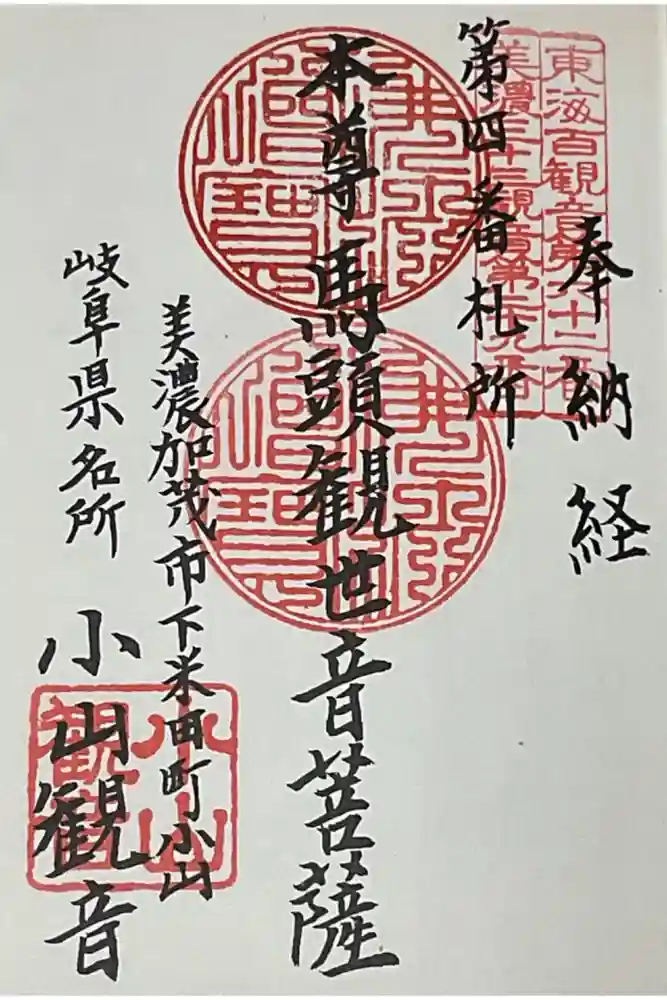 奉納経
東海百観音第六十二番
美濃三十三観音第二十九番
第四番札所
本尊馬頭観世音菩薩
佛法僧寶
佛法僧寶
美濃加茂市下米田町小山
岐阜県名所
小山観音
小山
観音